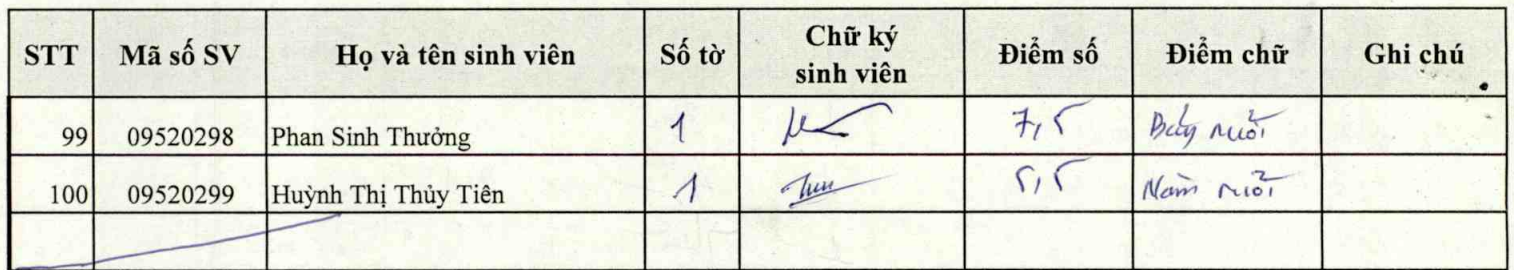 STT Mã số SV Họ và tên sinh viên Số tờ Chữ ký sinh viên Điểm số Điểm chữ Ghi chú
99 09520298 Phan Sinh Thưởng 1 7,5 Bảy rưỡi
100 09520299 Huỳnh Thị Thủy Tiên 1 5,5 Năm rưỡi